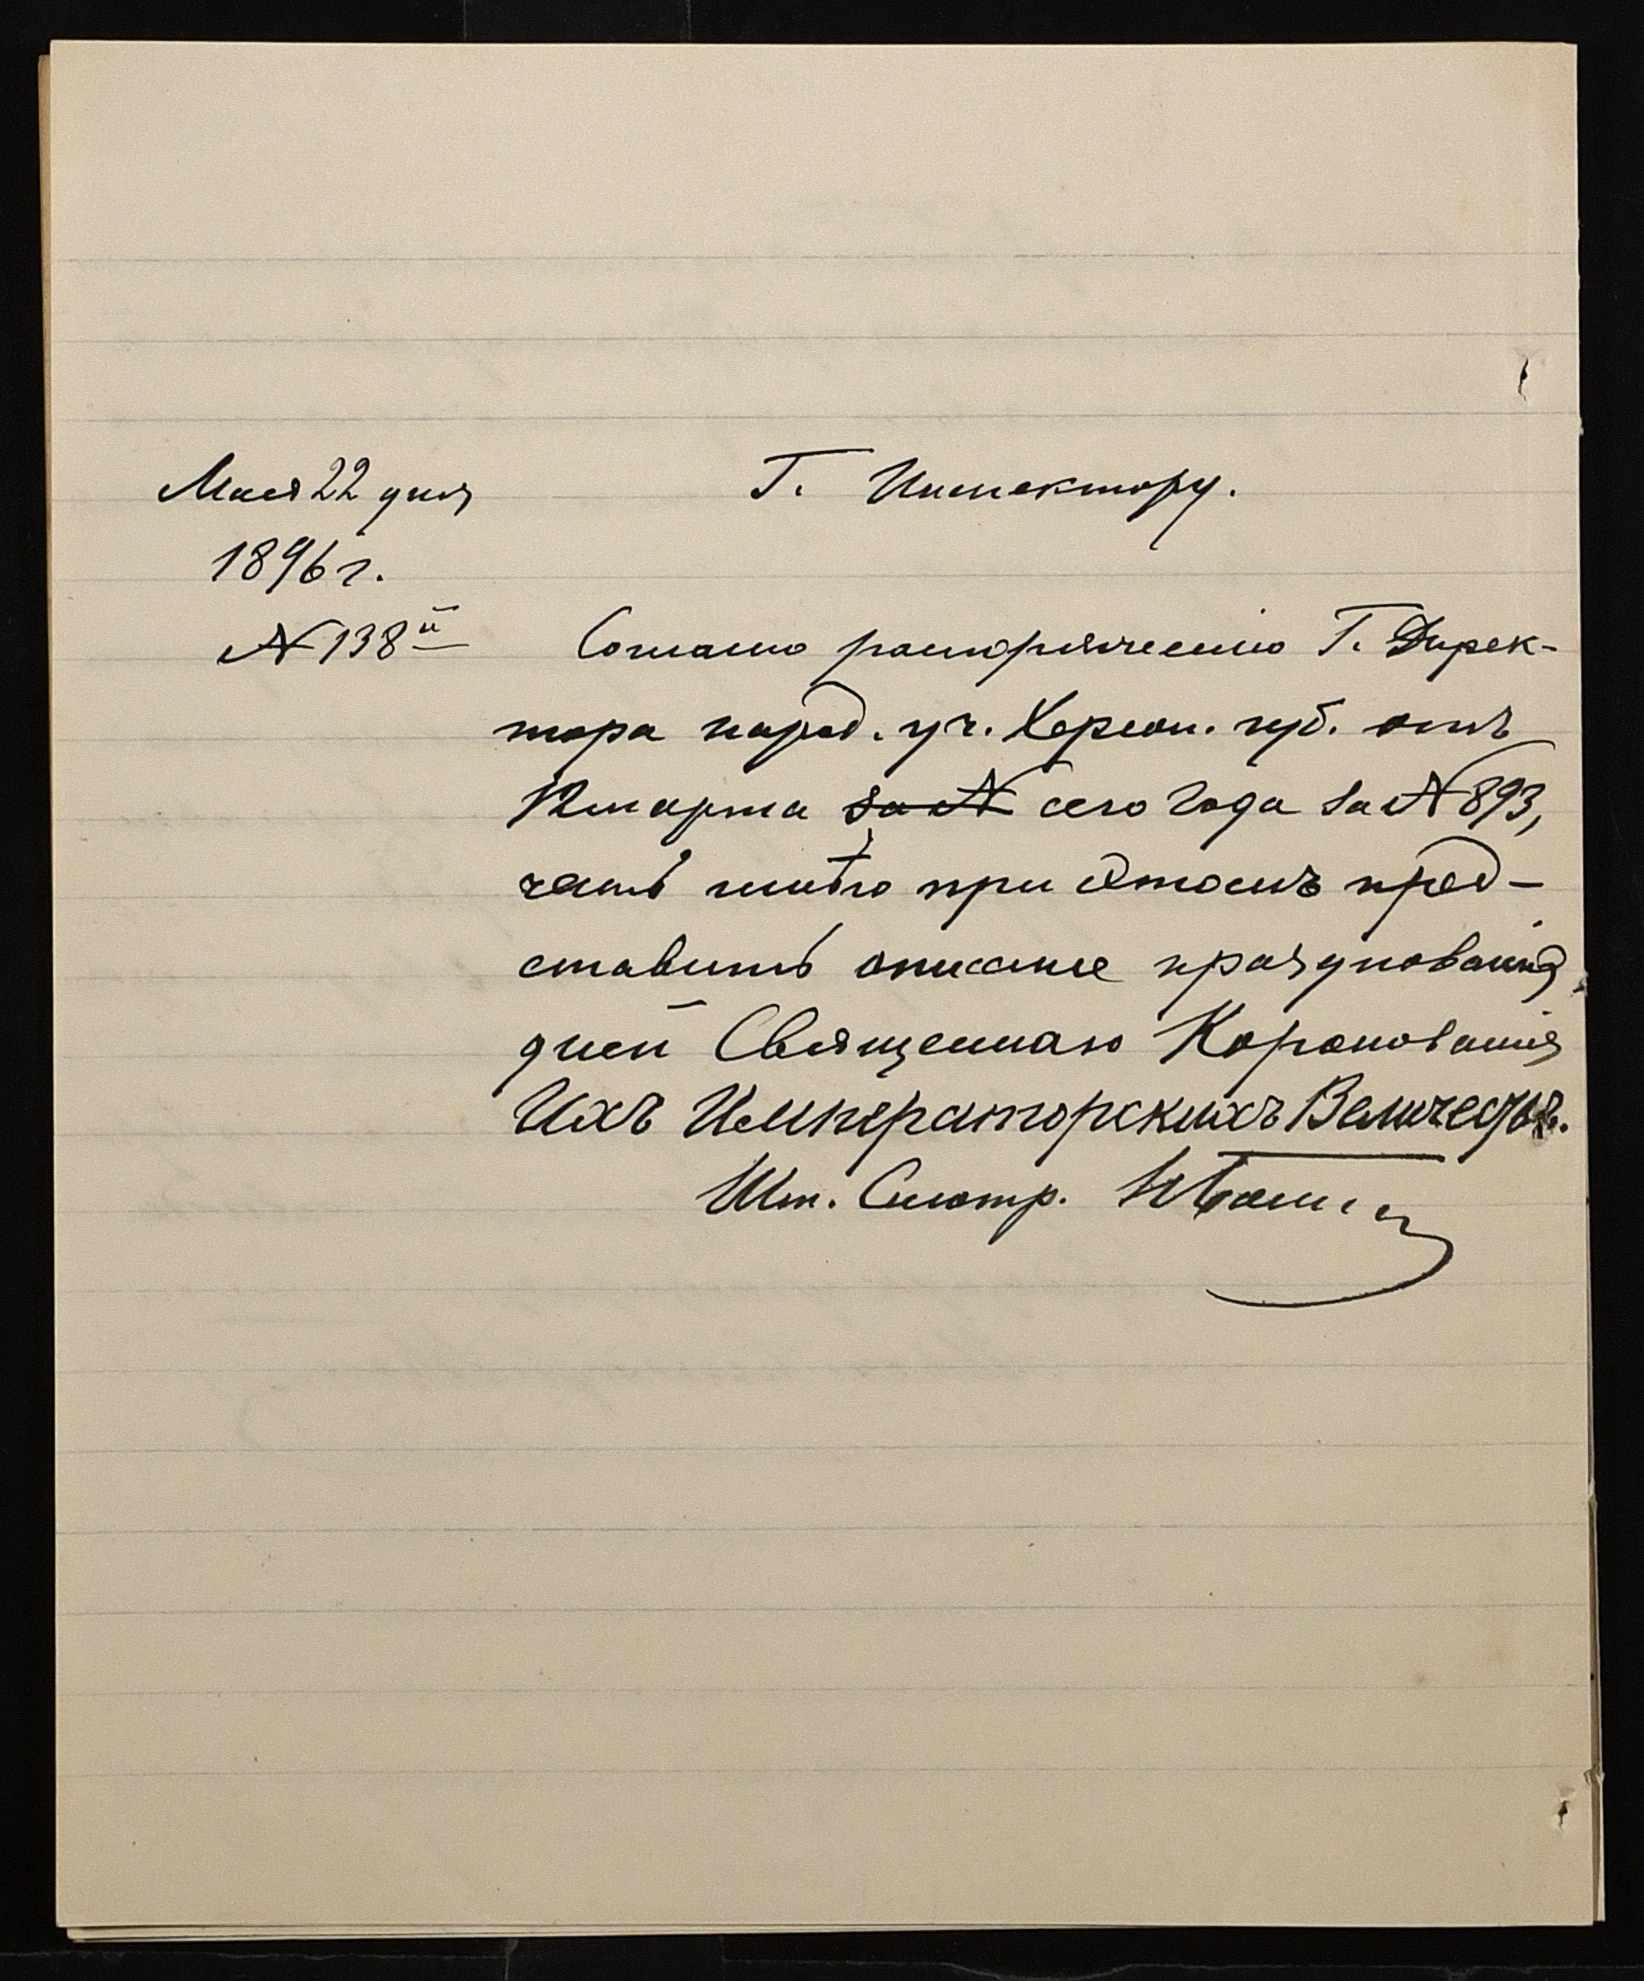 Мая 22 дня
1896 г.
№ 138й
Г. Инспектору.
Согласно распоряженiю Г. Дирек-
тора народ. уч. Херсон. губ. отъ
12 марта за № сего года за № 893,
честь имѣю при этомъ пред-
ставить описанiе празднованiя
дней Священнаго Коронованiя
Ихъ Императорскихъ Величествъ.
Шт. Смотр.